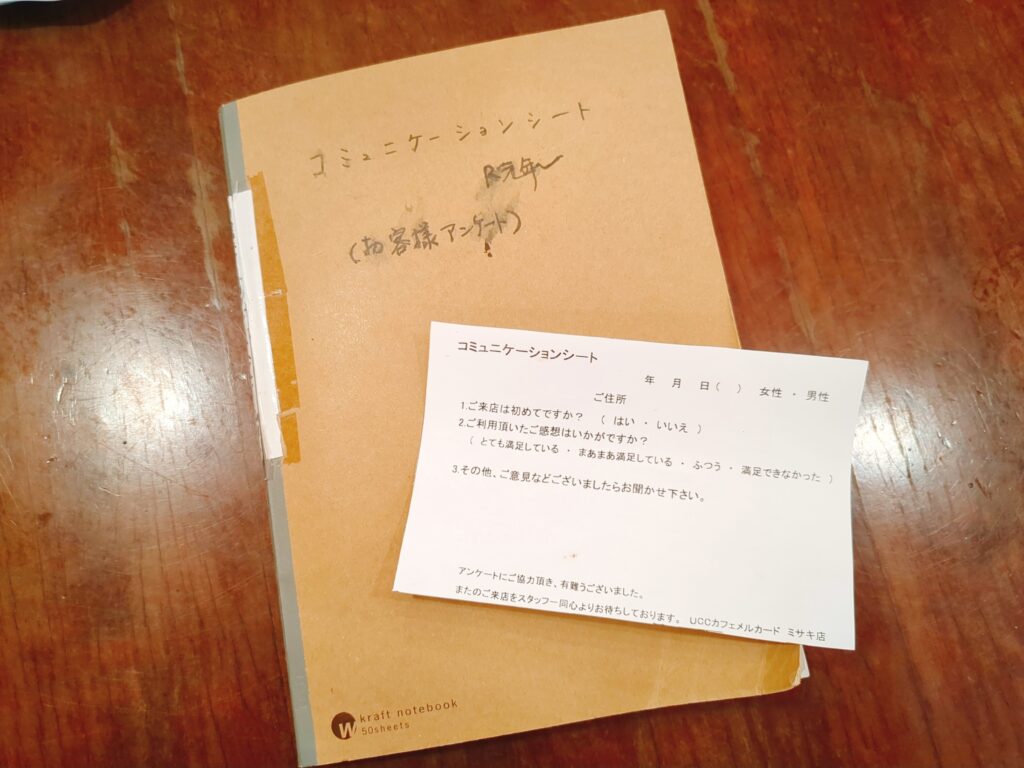 コミュニケーションシート
R元年〜
(お客様アンケート)
コミュニケーションシート
年 月 日( ) 女性 ・ 男性
ご住所
1.ご来店は初めてですか? ( はい ・ いいえ )
2.ご利用頂いたご感想はいかがですか?
( とても満足している ・ まあまあ満足している ・ ふつう ・ 満足できなかった )
3.その他、ご意見などございましたらお聞かせ下さい。
アンケートにご協力頂き、有難うございました。
またのご来店をスタッフ一同心よりお待ちしております。 UCCカフェメルカード ミサキ店
W kraft notebook
50sheets